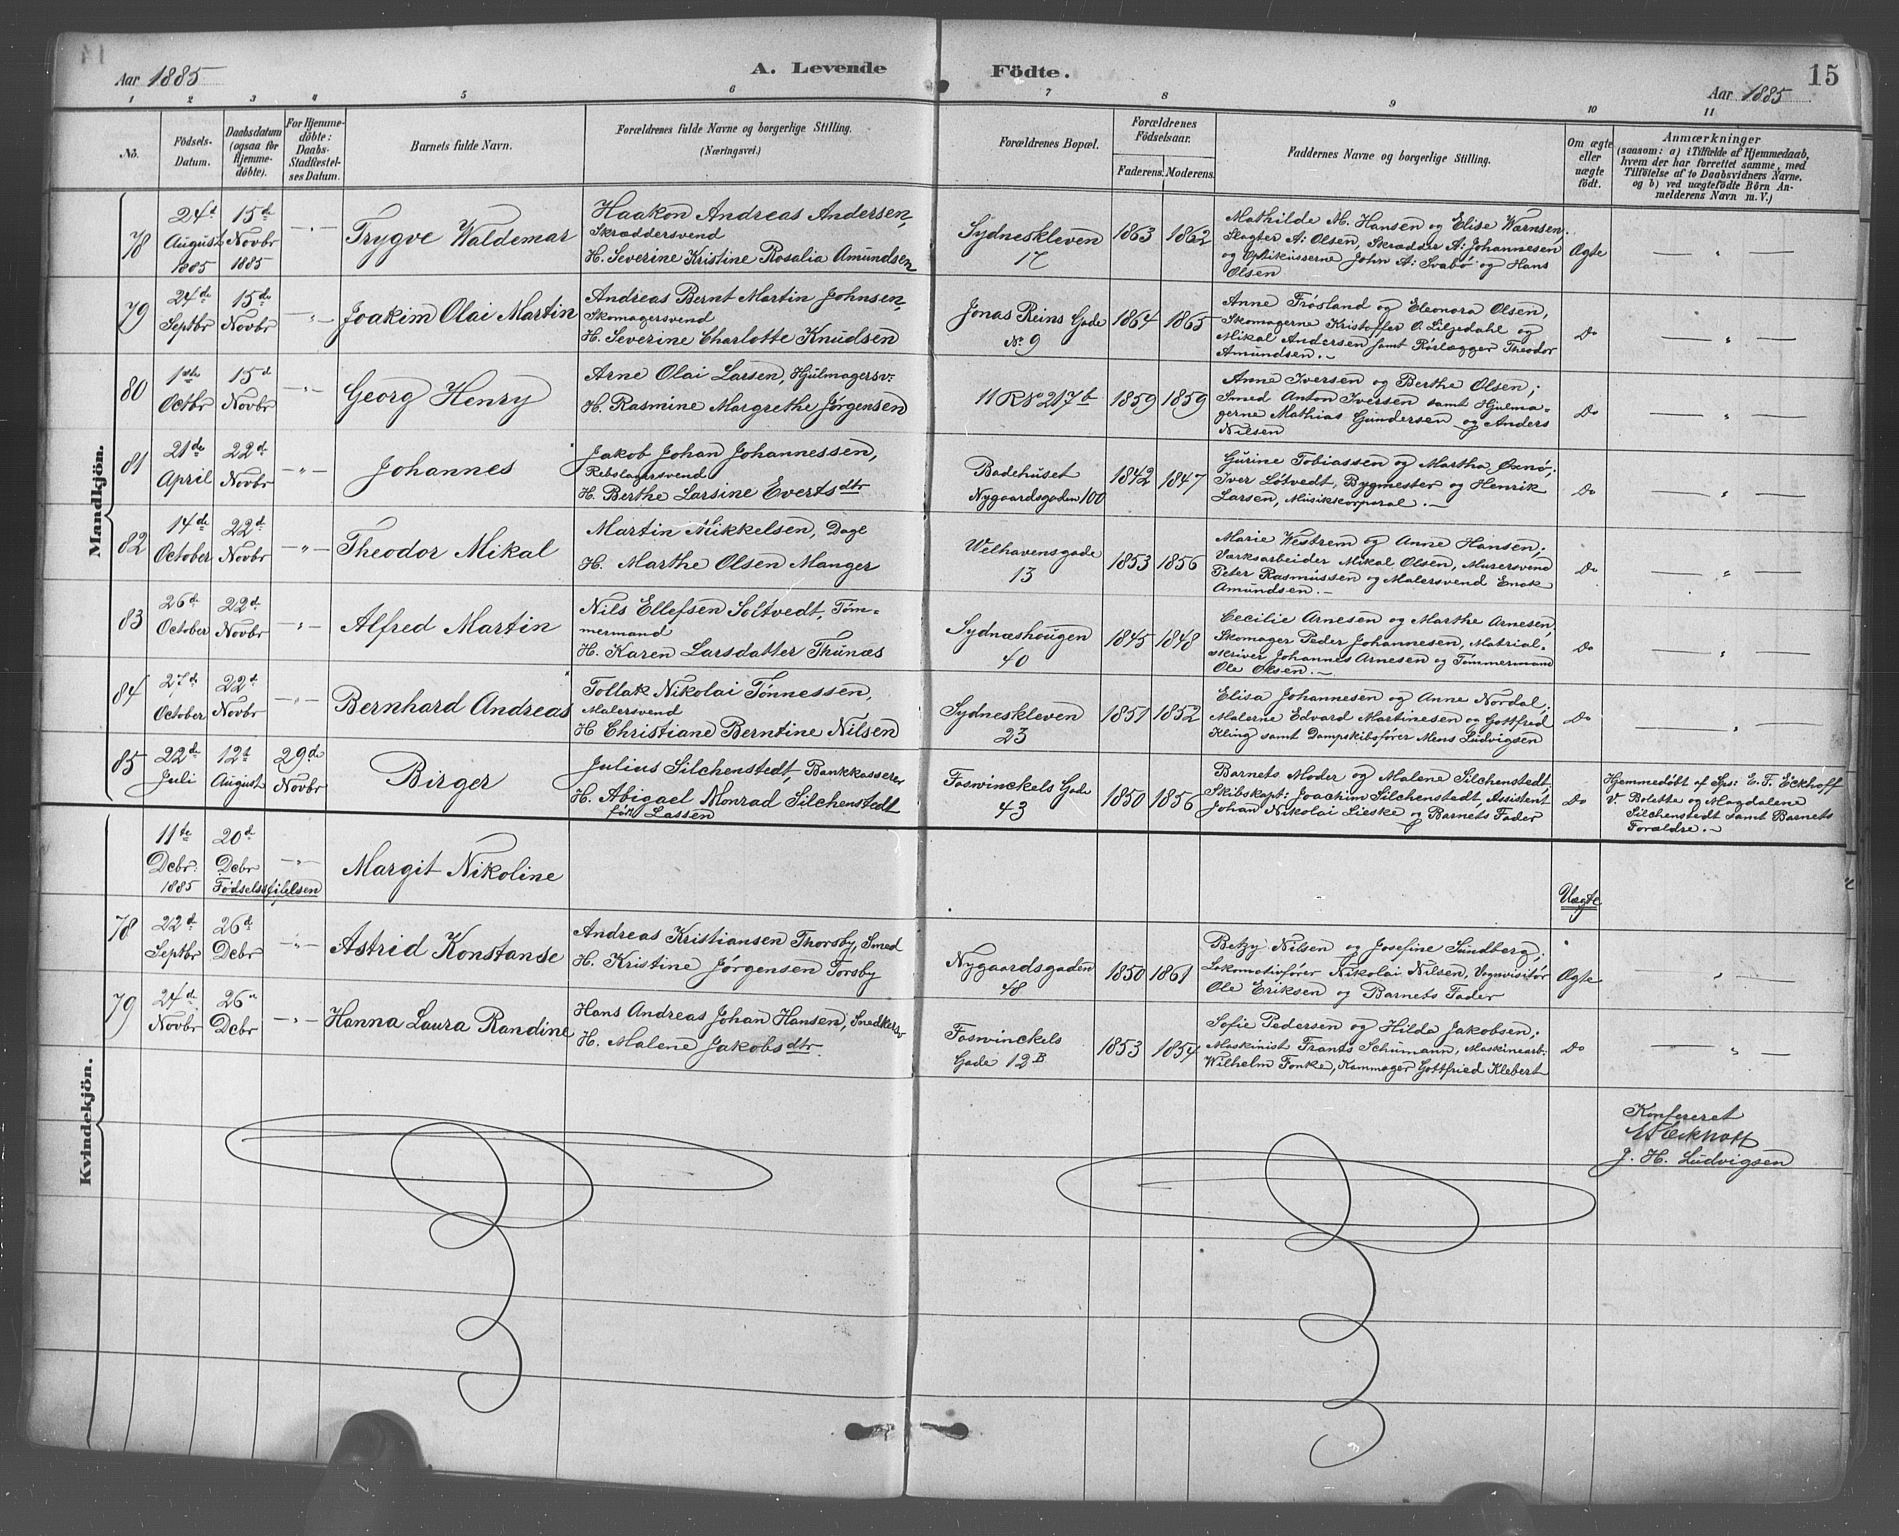 Aar 1885
A. Levende Födte.
Aar 1885
15
1 2 3 4 5 6 7 8 9 10 11
No.
Födsels-Datum.
Daabsdatum (ogsaa for Hjemme-döbte).
For Hjemme-döbte: Daabs-Stadfæstel-ses Datum.
Barnets fulde Navn.
Forældrenes fulde Navne og borgerlige Stilling. (Næringsvei.)
Forældrenes Bopæl.
Forældrenes Fødselsaar.
Faderens. Moderens.
Faddernes Navne og borgerlige Stilling.
Om ægte eller uægte födt.
Anmærkninger
(saasom: a) i Tilfælde af Hjemmedaab,
hvem der har forrettet samme, med
Tilföielse af to Daabsvidners Navne,
og b) ved uægtefödte Börn An-
melderens Navn m. V.)
Mandkjön.
78
24d August 1885
15de Novbr 1885
-"-
Trygve Waldemar
Haakon Andreas Andersen,
Skræddersvend
H. Severine Kristine Rosalia Amundsen
Sydneskleven
17
1863 1862
Mathilde M. Hansen og Elise Wærnsen.
Slagter A: Olsen, Skrædder A: Johannesen
og Optikusserne John A: Svabø og Hans
Olsen
Ægte
— " —
79
24de Septbr
15de Novbr
-"-
Joakim Olai Martin
Andreas Bernt Martin Johnsen,
Skomagersvend
H. Severine Charlotte Knudsen
Jonas Reins Gade
No 9
1864 1865
Anne Frøsland og Eleonora Olsen,
Skomagerne Kristoffer O. Liljedahl og
Mikal Andersen samt Rørlægger Theodor
Amundsen. -
Do
— " —
80
1ste Octbr
15d Novbr
-"-
Georg Henry
Arne Olai Larsen, Hjulmagersv:
H. Rasmine Margrethe Jørgensen
11 R No 217b
1859 1859
Anne Iversen og Berthe Olsen;
Smed Anton Iversen samt Hjulma-
gerne Mathias Gundersen og Anders
Nilsen
Do
— " —
81
21de April
22de Novbr
-"-
Johannes
Jakob Johan Johannessen,
Rebslagersvend
H. Berthe Larsine Evertsdtr
Badehuset
Nygaardsgaden 100
1842 1847
Gurine Tobiassen og Martha Øxnø;
Iver Løtvedt, Bygmester og Henrik
Larsen, Musikkorporal. -
Do
— " —
82
14de October
22d Novbr
-"-
Theodor Mikal
Martin Mikkelsen, Dage
H. Marthe Olsen Manger
Welhavensgade
13
1853 1856
Marie Westrem og Anne Hansen;
Værksarbeider Mikal Olsen, Murersvend
Peter Rasmussen og Malersvend
Amundsen. -
Do
— " —
83
26de October
22d Novbr
-"-
Alfred Martin
Nils Ellefsen Soltvedt, Tøm-
mermand
H. Karen Larsdatter Thunæs
Sydnæshougen
40
1845 1848
Cecilie Arnesen og Marthe Arnesen,
Skomager Peder Johannesen, Matrial-
skriver Johannes Arnesen og Tømmermand
Ole Olsen. -
Do
— " —
84
27de October
22d Novbr
-"-
Bernhard Andreas
Tollak Nikolai Tønnessen,
Malersvend
H Christiane Berntine Nilsen
Sydneskleven
23
1851 1852
Elisa Johannesen og Anne Nordal;
Malerne Edvard Martinesen og Gottfred
Kling samt Dampskibsfører Mons Ludvigsen
Do
— " —
85
22de Juli
12t August
29d Novbr
Birger
Julius Silchenstedt, Bankkasserer
H. Abigael Monrad Silchenstedt
født Lassen
Foswinckels Gade
43
1850 1856
Barnets Moder og Malene Silchenstedt,
Skibskapt: Joachim Silchenstedt, Assistent
Johan Nikolai Lieske og Barnets Fader
Do
Hjemmedøbt af Sps: E. F. Eckhoff
V. Bolette og Magdalene
Silchenstedt samt Barnets
Forældre. -
Kvindekjön.
11te Decbr. 1885
20d Decbr
Fødselsstiftelsen
-"-
Margit Nikoline
Uægte
78
22d Septbr
26d Decbr
-"-
Astrid Konstanse
Andreas Kristiansen Thorsby, Smed
H. Kristine Jørgensen Torsby
Nygaardsgaden
48
1850 1861
Betzy Nilsen og Josefine Sundberg;
Lokomotivfører Nikolai Nilsen, Vognvisitør
Ole Eriksen og Barnets Fader
Ægte
— " —
79
24de Novbr
26d Decbr
-"-
Hanna Laura Randine
Hans Andreas Johan Hansen, Snedkersv
H. Malene Jakobsdtr.
Foswinckels
Gade 12B
1853 1854
Sofie Pedersen og Hilda Jakobsen;
Maskinist Frants Schumann, Maskinearb.
Wilhelm Fonke, Kammager Gottfried Klebert
Do
— " —
Konfereret
E F Eckhoff
J. H. Ludvigsen